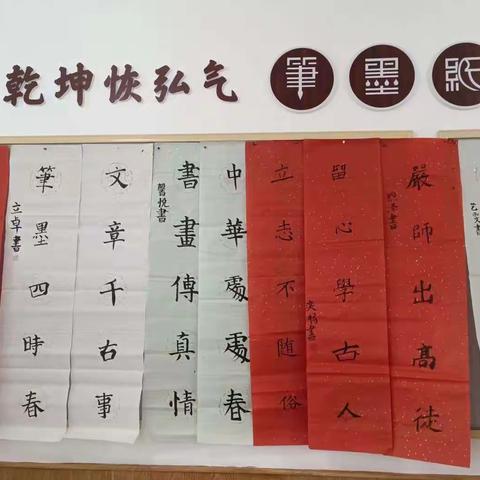 乾坤恢弘气
筆墨紙
嚴師出高徒
留心學古人
立志不随俗
中華處處春
書畫傳真情
馨悦書
文章千古事
筆墨四時春
立卓書